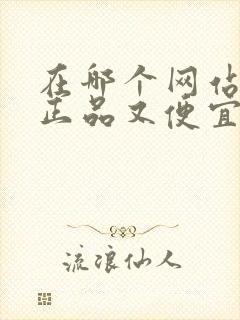 在哪个网站
正品又便宜
流浪仙人